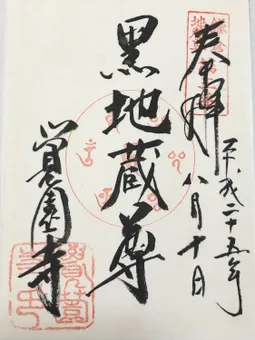 奉拝
平成二十五年
八月十日
黒地蔵尊
覚園寺